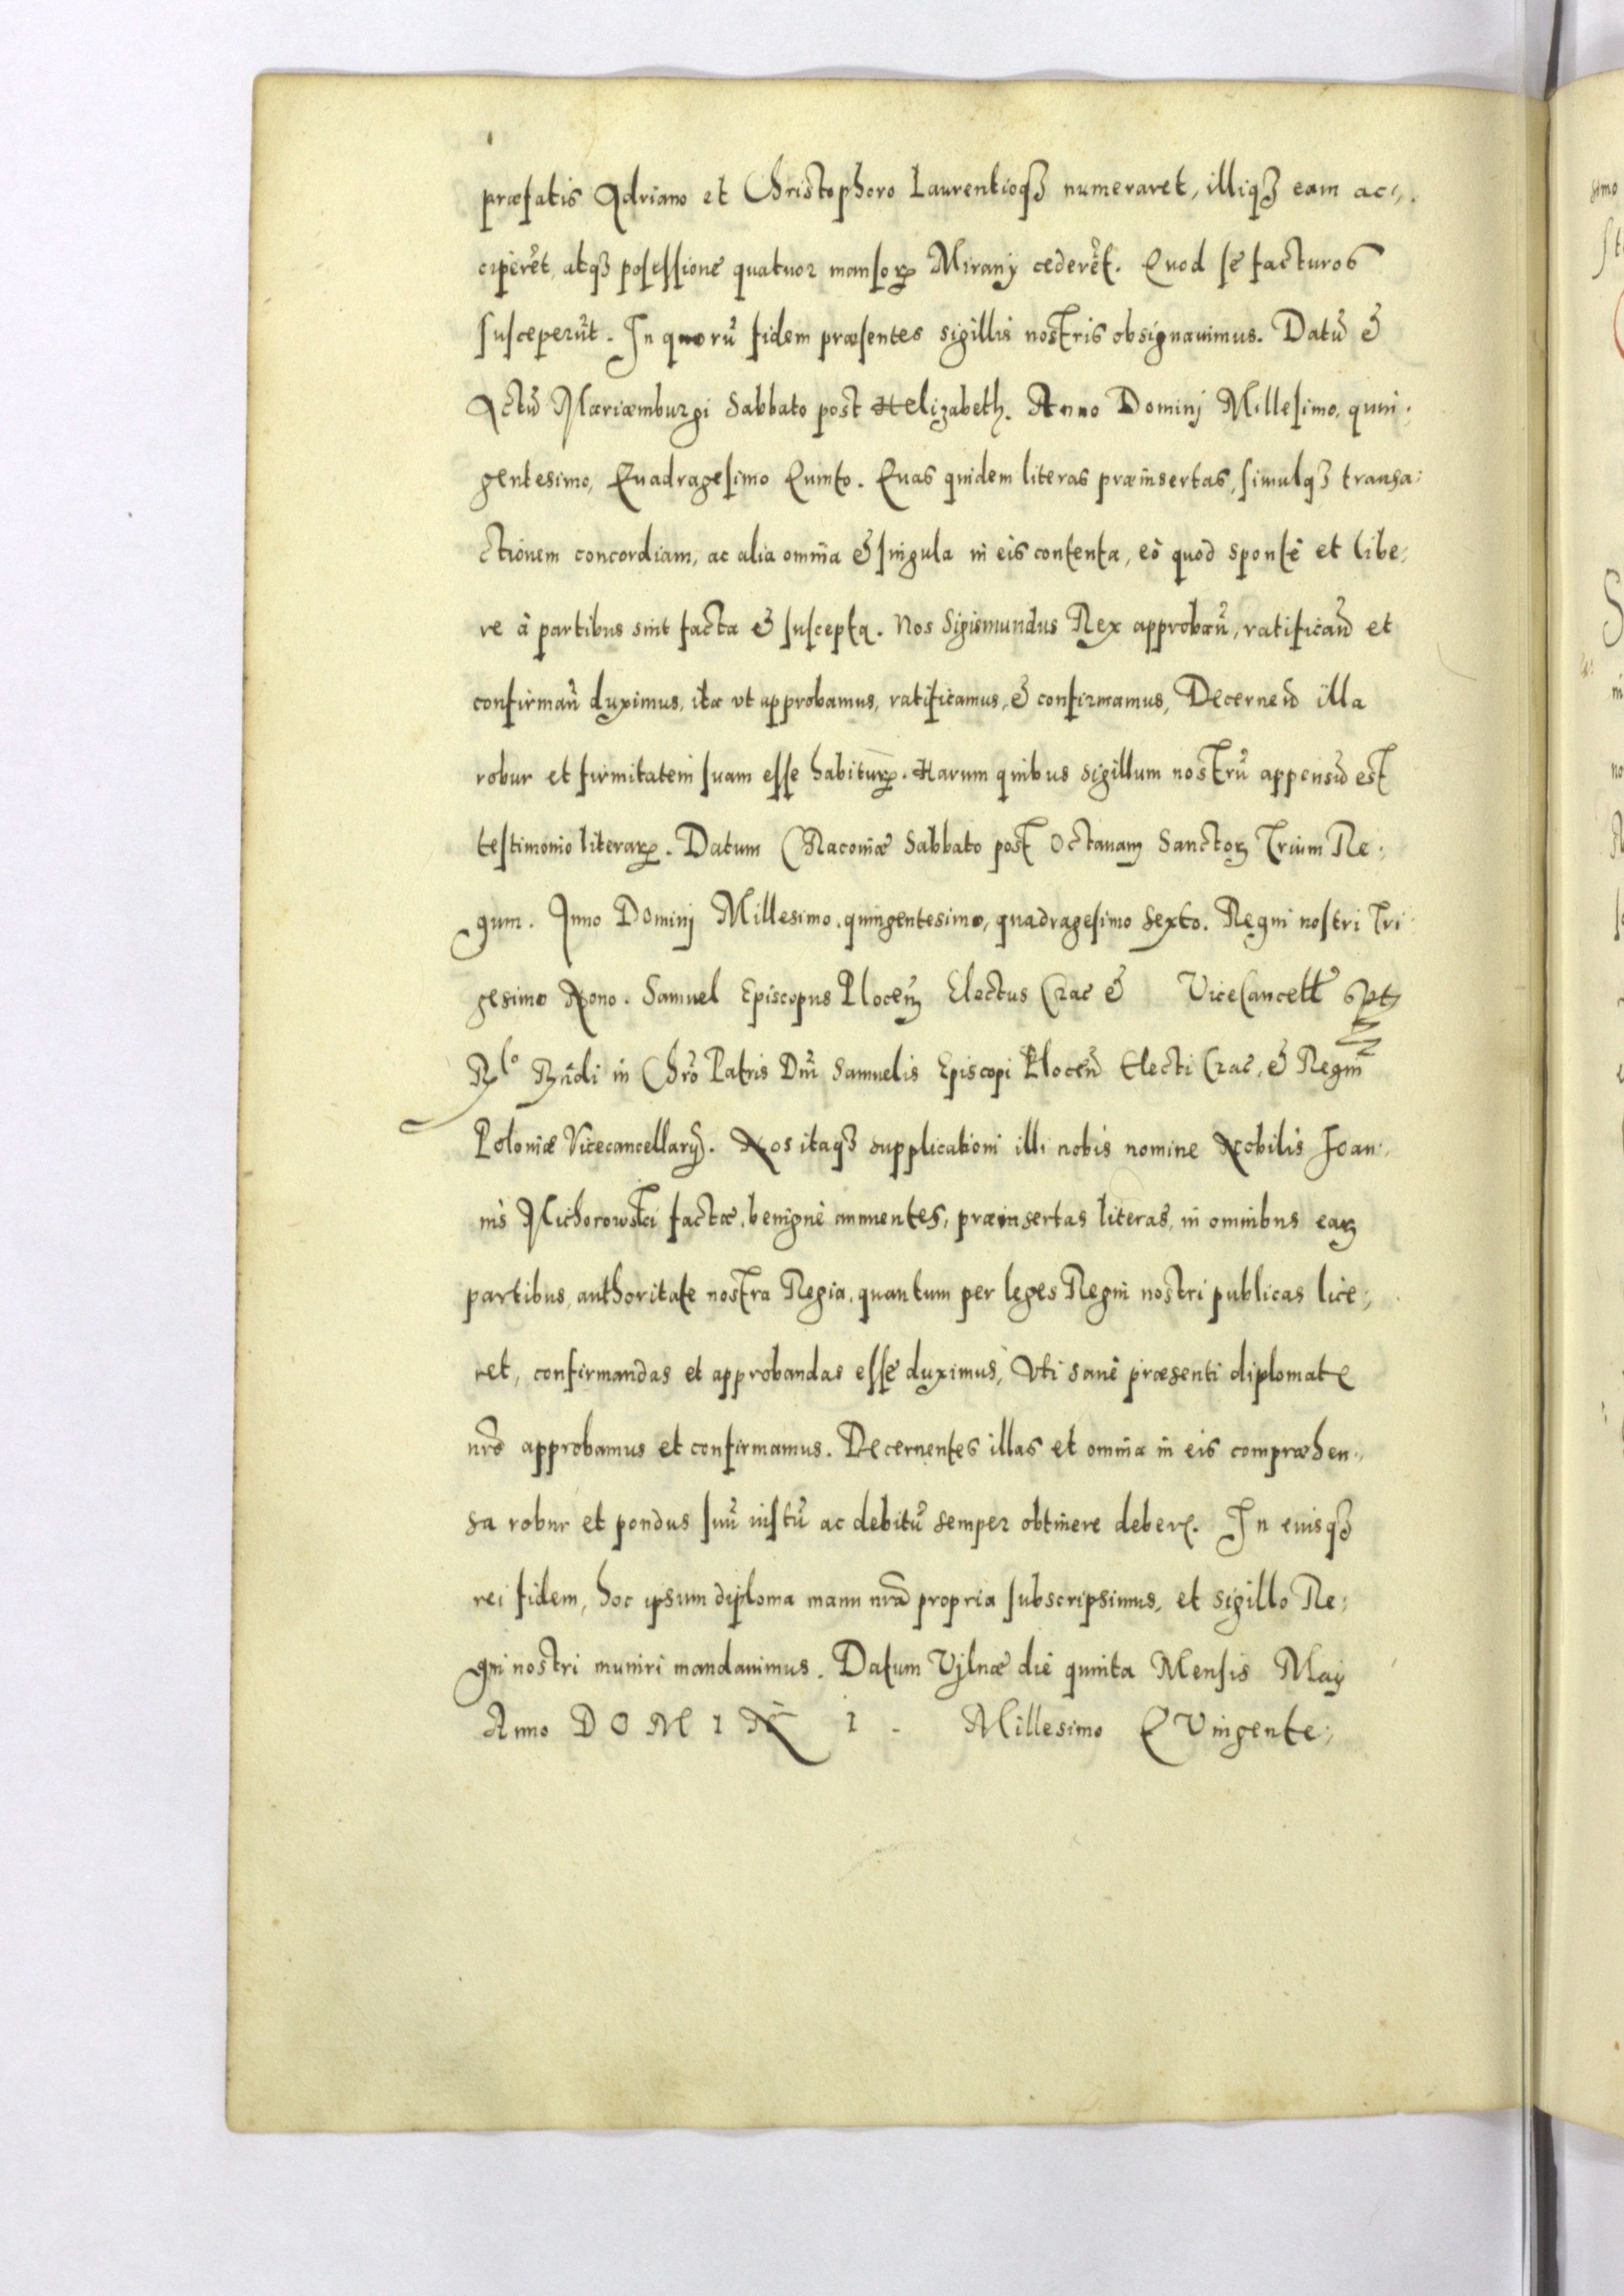 præfatis Adriano et Christophoro Laurentioqȝ numeraret, illiqȝ eam ac⸗
ciperēt, atqȝ posessionē quatuor mansoꝝ Mirany cederēt. Quod se facturos
susceperūt. In quorū fidem præsentes sigillis nostris obsignavimus. Datū &
Actū Mariæmburgi Sabbato post Helizabeth. Anno Dominj Millesimo, quin⸗
gentesimo, Quadragesimo Quinto. Quas quidem literas præinsertas, simulqȝ transa⸗
ctionem concordiam, ac alia omnia & singula in eis contenta, eò quod spontè et libe⸗
re à partibus sint facta & suscepta. Nos Sigismundus Rex approbañ, ratificañd et
confirmañ duximus, ita vt approbamus, ratificamus, & confirmamus, Decerneñd illa
robur et firmitatem suam esse habituꝝ. Harum quibus sigillum nostrū appensū est
testimonio literaꝝ. Datum Craconiæ Sabbato post Octauam Sanctoꝝ Trium Re⸗
gum. Anno Dominj Millesimo, quingentesimo, quadragesimo sexto. Regni nostri Tri
gesimo Nono. Samuel Episcopus Plocen̄ Electus Crac̄ & ViceCancell̄
Rndi in Chrō Patris Dnī Samuelis Episcopi Plocen̄ Electi Crac̄, & Regni
Poloniæ Vicecancellarÿ. Nos itaqȝ supplicationi illi nobis nomine Nobilis Joan⸗
nis Michorowski factæ, benignè annuentes, præinsertas literas, in omnibus eaꝝ
partibus, authoritate nostra Regia, quantum per leges Regni nostri publicas lice⸗
ret, confirmandas et approbandas esse duximus, Vti sanè præsenti diplomate
nrō approbamus et confirmamus. Decernentes illas et omnia in eis compræhen⸗
sa robur et pondus suū iustū ac debitū semper obtinere debere. In cuiusqȝ
rei fidem, hoc ipsum diploma manu nrā propria subscripsimus, et sigillo Re⸗
gni nostri muniri mandauimus. Datum Vilnæ die quinta Mensis Maÿ
Anno DOMINI. Millesimo QVingente⸗